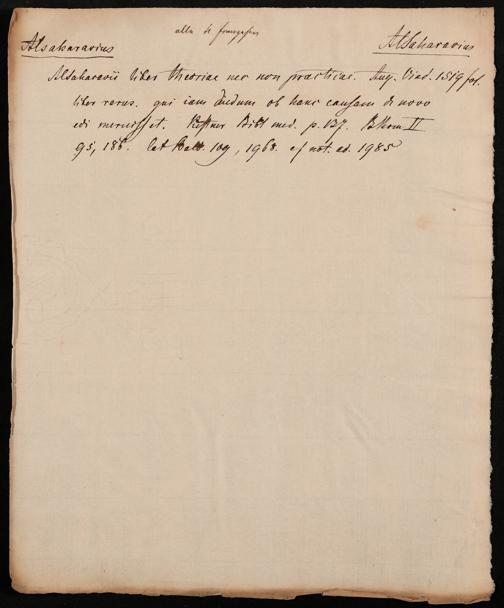 Alsaharavius
Alsaharavius
Alsaharavii liber theoriae nec non practicae. Aug. Vind. 1519 fol.
liber rarus. qui iam dudum ob hanc causam de novo
edi meruisset. Kestner Bibl med. p. 137. II
95, 186. Cat 109, 1968. cf not. ad. 1985